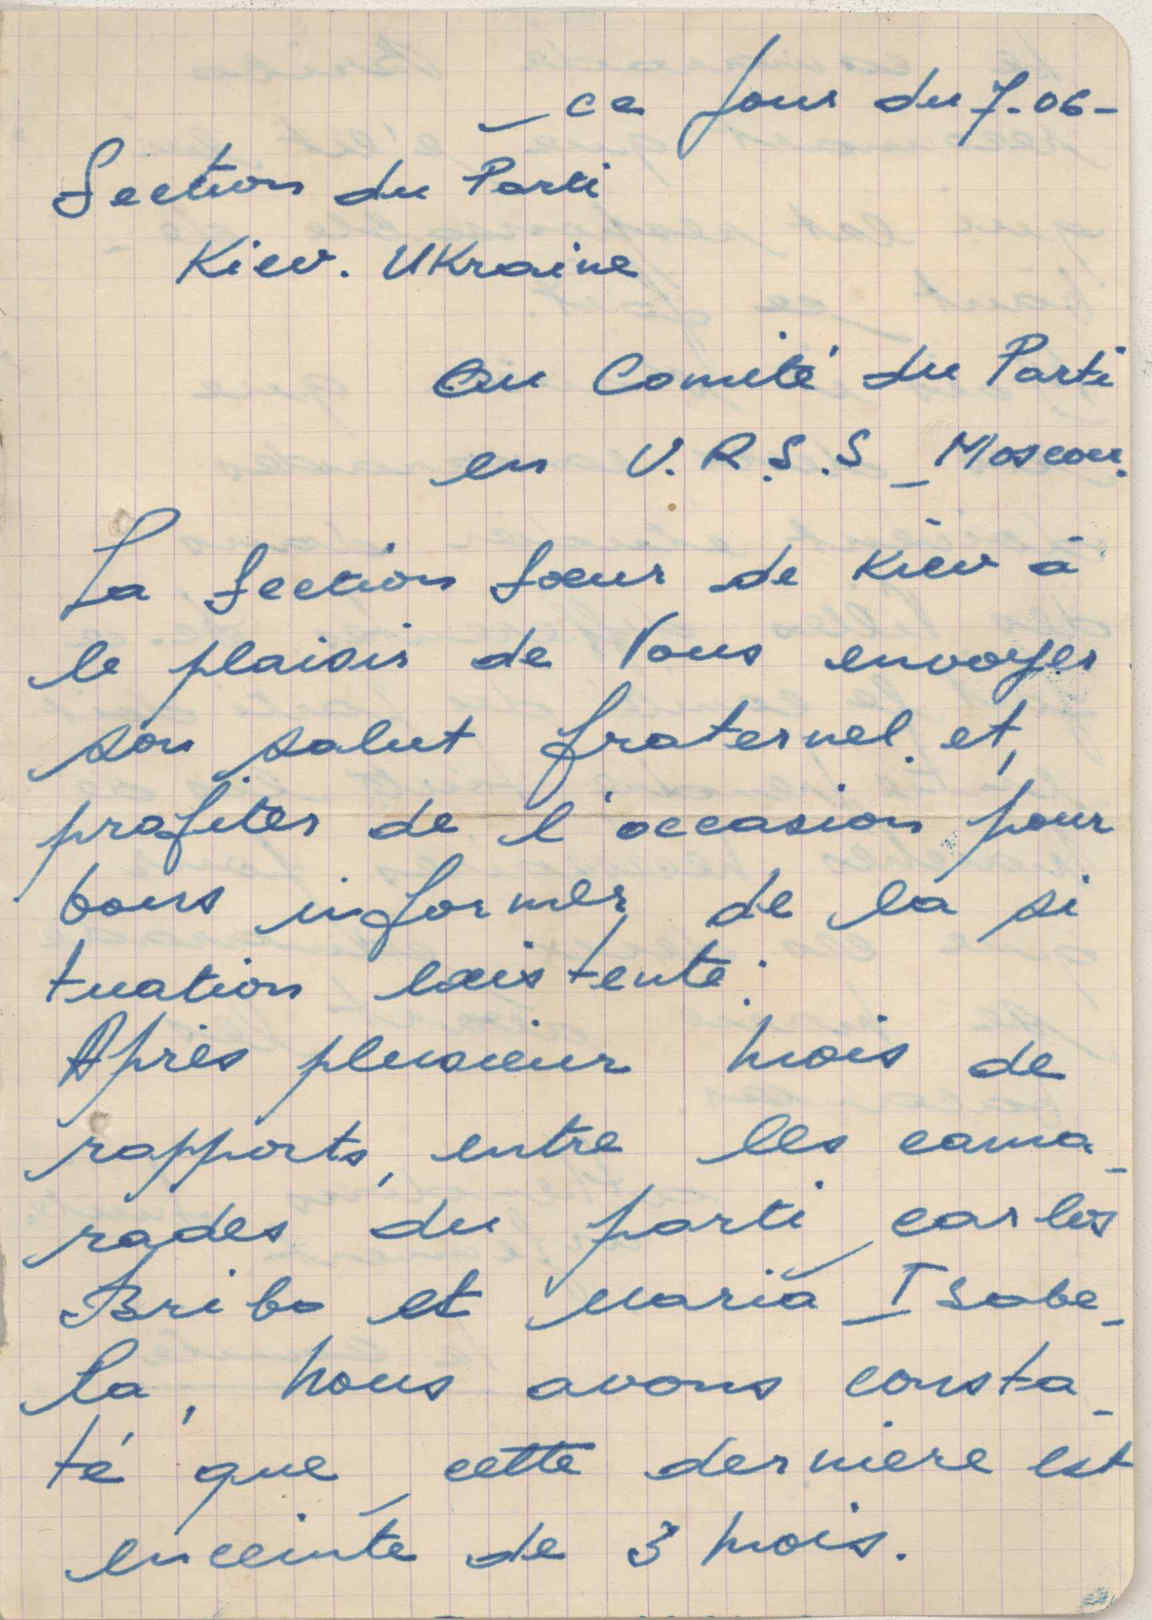 _ ce Jour du 7-06-
Section du Parti
Kiev. UKraine
Au Comité du Parti
en U.R.S.S _ Moscou.
La Section Soeur de Kiev à
le plaisir de Vous envoyer
son salut fraternel et,
profiter de l'occasion pour
vous informer de la si
tuation existente:
Après plusieur mois de
rapports, entre les cama_
rades du parti carlos
Bribo et Maria ISabe_
la, nous avons consta_
té que cette derniere est
enceinte de 3 mois.